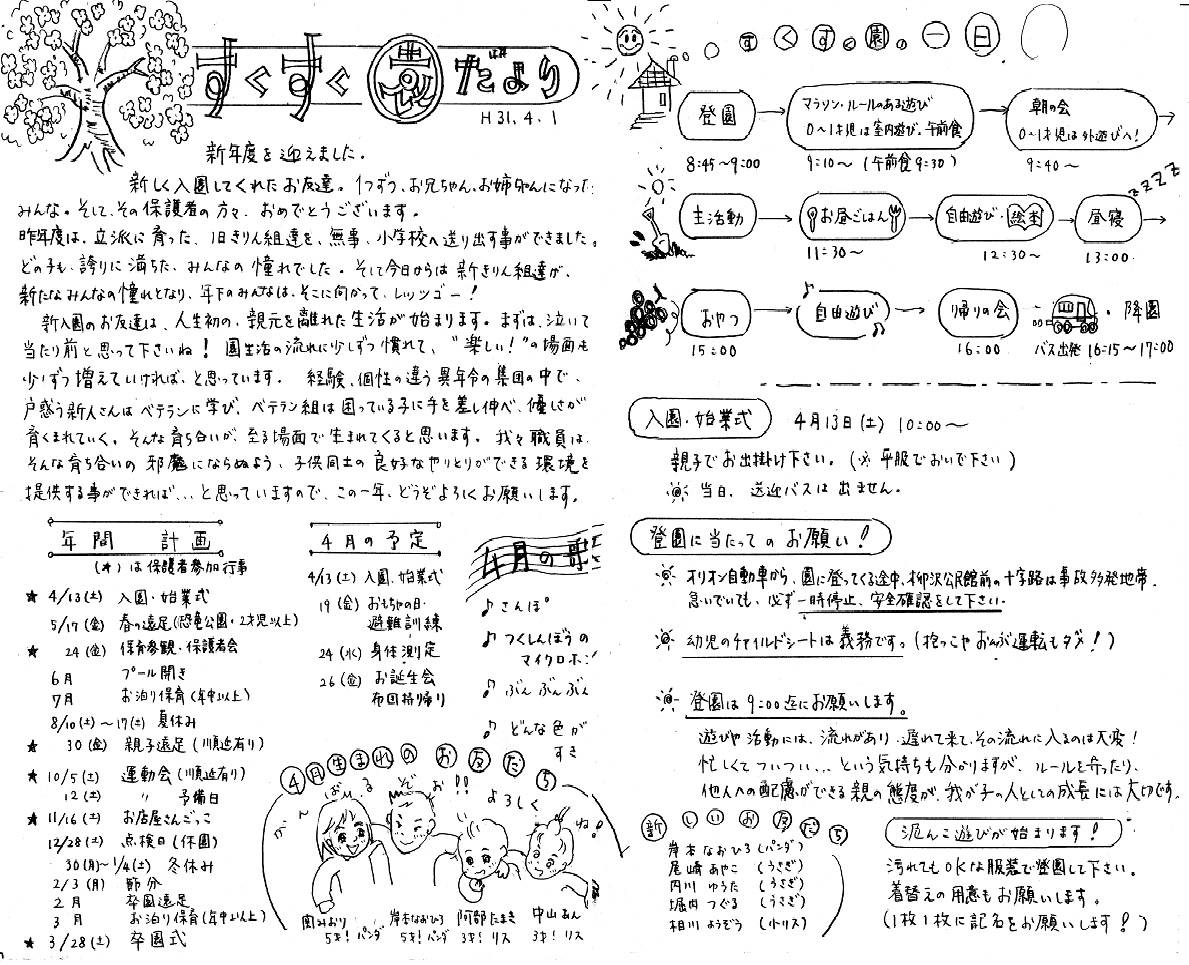 すくすく森だより
H31.4.1
新年度を迎えました。
新しく入園してくれたお友達。1つずつ、お兄ちゃん、お姉ちゃんになった
みんな。そして、その保護者の方々、おめでとうございます。
昨年度は、立派に育った、旧きりん組達を、無事、小学校へ送り出す事ができました。
どの子も、誇りに満ちた、みんなの憧れでした。そして今日からは新きりん組達が、
新たなみんなの憧れとなり、年下のみんなは、そこに向かって、レッツゴー!
新入園のお友達は、人生初の、親元を離れた生活が始まります。まずは、泣いて
当たり前と思って下さいね! 園生活の流れに少しずつ慣れて、"楽しい!"の場面も
少しずつ増えていければ、と思っています。 経験、個性の違う異年令の集団の中で、
戸惑う新人さんはベテランに学び、ベテラン組は困っている子に手を差し伸べ、優しさが
育くまれていく。そんな育ち合いが、至る場面で生まれてくると思います。我々職員は、
そんな育ち合いの邪魔にならぬよう、子供同士の良好なやりとりができる環境を
提供する事ができれば…と思っていますので、この一年、どうぞよろしくお願いします。
年間 計画
(★)は保護者参加行事
★ 4/13(土) 入園・始業式
5/17(金) 春の遠足(恐竜公園・2才児以上)
★ 24(金) 保育参観・保護者会
6月 プール開き
7月 お泊り保育(年中以上)
8/10(土)~17(土) 夏休み
★ 30(金) 親子遠足(順延有り)
★ 10/5(土) 運動会(順延有り)
12(土) 〃 予備日
★ 11/16(土) お店屋さんごっこ
12/28(土) 点検日(休園)
30(月)~1/4(土) 冬休み
2/3(月) 節分
2月 卒園遠足
3月 お泊り保育(年中以上)
★ 3/28(土) 卒園式
4月の予定
4/13(土) 入園、始業式
19(金) おもちゃの日・
避難訓練
24(水) 身体測定
26(金) お誕生会
布団持ち帰り
4月の歌
♪さんぽ
♪つくしんぼうの
マイクロホン
♪ぶんぶんぶん
♪どんな色が
すき
4月生まれのお友だち
がんばるぞお!!
よろしくね!
園みおり
5才!パンダ
岸本なおひろ
5才!パンダ
阿部たまき
3才!リス
中山あん
3才!リス
すくすく園の一日
登園
8:45~9:00
マラソン・ルールのある遊び
0~1才児は室内遊び。午前食
9:10~(午前食9:30)
朝の会
0~1才児は外遊びへ!
9:40~
主活動
お昼ごはん
11:30~
自由遊び・絵本
12:30~
昼寝
13:00
ZZZZ
おやつ
15:00
自由遊び
帰りの会
16:00
・降園
バス出発16:15~17:00
入園・始業式 4月13日(土) 10:00~
親子でお出掛け下さい。(※平服でおいで下さい)
当日、送迎バスは出ません。
登園に当たってのお願い!
オリオン自動車から、園に登ってくる途中、柳沢公民館前の十字路は事故多発地帯。
急いでいても、必ず一時停止、安全確認をして下さい。
幼児のチャイルドシートは義務です。(抱っこやおんぶ運転もダメ!)
登園は9:00迄にお願いします。
遊びや活動には、流れがあり、遅れて来て、その流れに入るのは大変!
忙しくてついつい…という気持ちも分かりますが、ルールを守ったり、
他人への配慮ができる親の態度が、我が子の人としての成長には大切です。
新しいお友だち
岸本なおひろ(パンダ)
尾崎あやこ(うさぎ)
円川ゆうた(うさぎ)
堀内つぐる(うさぎ)
相川ようぞう(小リス)
泥んこ遊びが始まります!
汚れてもOKな服装で登園して下さい。
着替えの用意もお願いします。
(1枚1枚に記名をお願いします!)